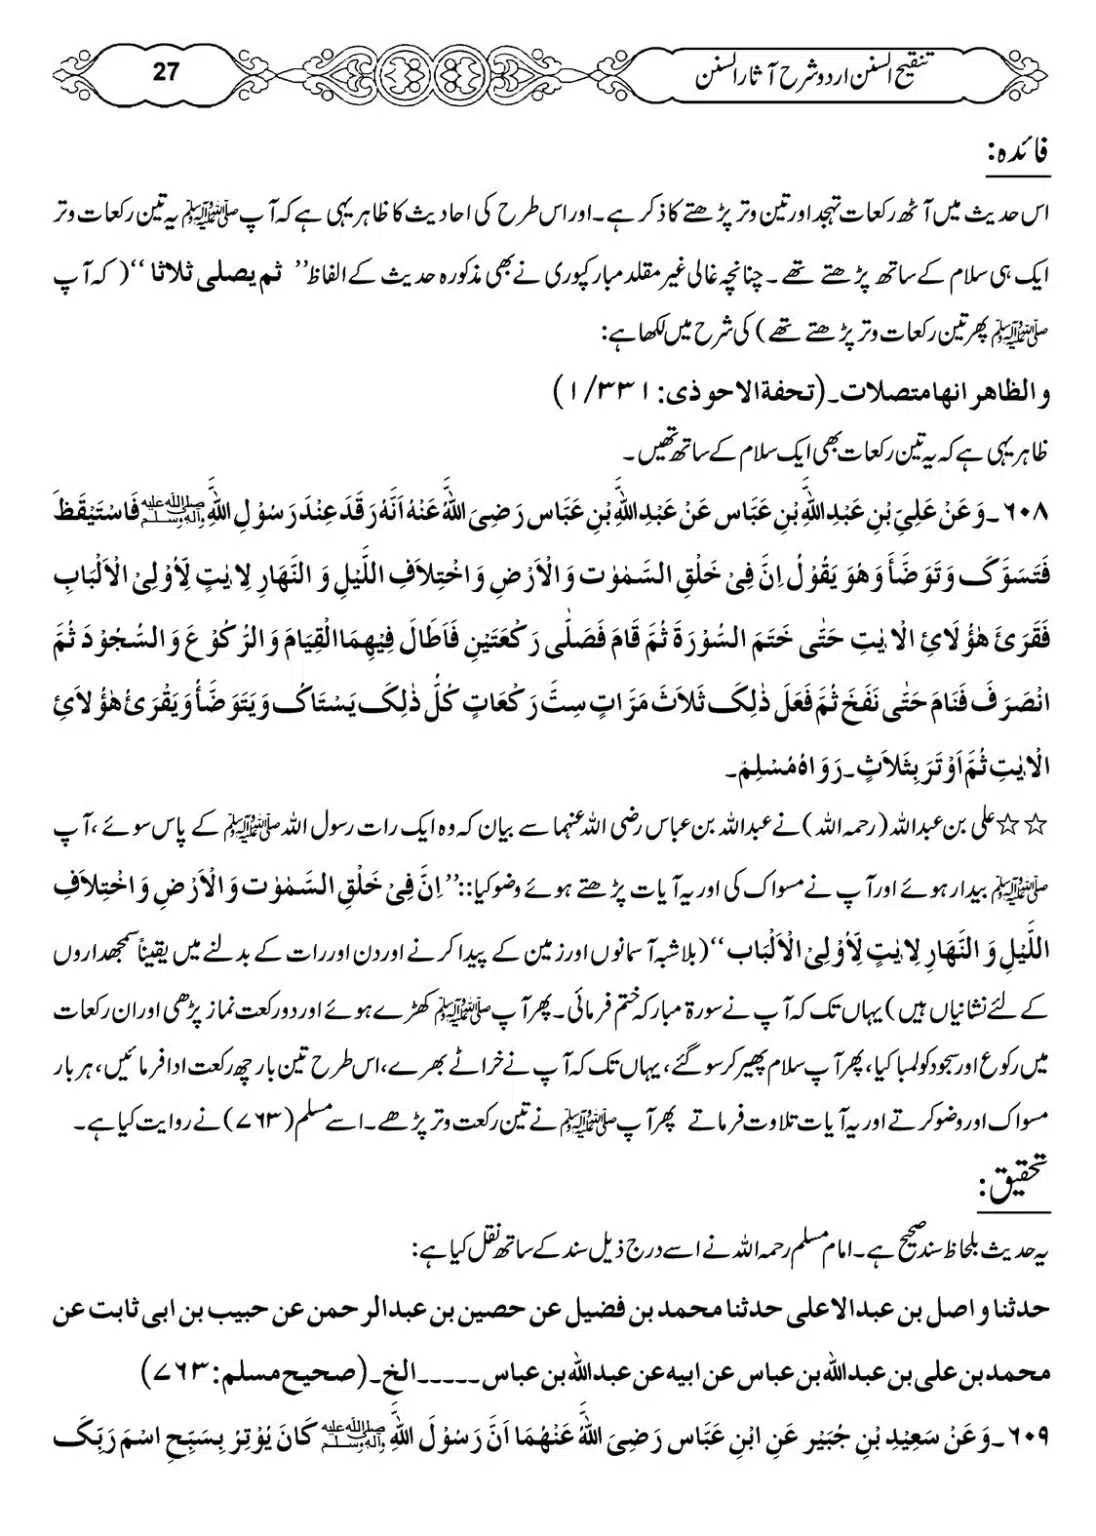 تنقیح السنن اردو شرح آثار السنن
27
فائدہ:
اس حدیث میں آٹھ رکعات تہجد اور تین وتر پڑھتے کا ذکر ہے۔ اور اس طرح کی احادیث کا ظاہر یہی ہے کہ آپ ﷺ یہ تین رکعات وتر
ایک ہی سلام کے ساتھ پڑھتے تھے۔ چنانچہ غالی غیر مقلد مبارکپوری نے بھی مذکورہ حدیث کے الفاظ ’’ ثم یصلی ثلاثا ‘‘ ( کہ آپ
ﷺ پھر تین رکعات وتر پڑھتے تھے ) کی شرح میں لکھا ہے:
و الظاهر انها متصلات۔ (تحفة الاحوذی: ۱/۳۳۱)
ظاہر یہی ہے کہ یہ تین رکعات بھی ایک سلام کے ساتھ تھیں۔
۶۰۸۔ وَعَنْ عَلِیِّ بْنِ عَبْدِ اللّٰہِ بْنِ عَبَّاسٍ عَنْ عَبْدِ اللّٰہِ بْنِ عَبَّاسٍ رَضِیَ اللّٰہُ عَنْہُ اَنَّہٗ رَقَدَ عِنْدَ رَسُوْلِ اللّٰہِ ﷺ فَاسْتَیْقَظَ
فَتَسَوَّکَ وَتَوَضَّأَ وَھُوَ یَقُوْلُ اِنَّ فِیْ خَلْقِ السَّمٰوٰتِ وَالْاَرْضِ وَاخْتِلَافِ اللَّیْلِ وَ النَّھَارِ لِاٰیٰتٍ لِّاُوْلِیْ الْاَلْبَابِ
فَقَرَئَ ھٰؤُلَائِ الْاٰیٰتِ حَتّٰی خَتَمَ السُّوْرَۃَ ثُمَّ قَامَ فَصَلّٰی رَکْعَتَیْنِ فَاَطَالَ فِیْھِمَا الْقِیَامَ وَالرُّکُوْعَ وَالسُّجُوْدَ ثُمَّ
انْصَرَفَ فَنَامَ حَتّٰی نَفَخَ ثُمَّ فَعَلَ ذٰلِکَ ثَلَاثَ مَرَّاتٍ سِتَّ رَکْعَاتٍ کُلُّ ذٰلِکَ یَسْتَاکُ وَیَتَوَضَّأُ وَیَقْرَئُ ھٰؤُلَائِ
الْاٰیٰتِ ثُمَّ اَوْتَرَ بِثَلَاثٍ۔ رَوَاہُ مُسْلِمٌ۔
☆☆ علی بن عبداللہ (رحمہ اللہ) نے عبداللہ بن عباس رضی اللہ عنہما سے بیان کہ وہ ایک رات رسول اللہ ﷺ کے پاس سوئے ، آپ
ﷺ بیدار ہوئے اور آپ نے مسواک کی اور یہ آیات پڑھتے ہوئے وضو کیا:: ’’ اِنَّ فِیْ خَلْقِ السَّمٰوٰتِ وَالْاَرْضِ وَاخْتِلَافِ
اللَّیْلِ وَ النَّھَارِ لِاٰیٰتٍ لِّاُوْلِیْ الْاَلْبَابِ ‘‘ (بلاشبہ آسمانوں اور زمین کے پیدا کرنے اور دن اور رات کے بدلنے میں یقیناً سمجھداروں
کے لئے نشانیاں ہیں) یہاں تک کہ آپ نے سورۃ مبارکہ ختم فرمائی۔ پھر آپ ﷺ کھڑے ہوئے اور دو رکعت نماز پڑھی اور ان رکعات
میں رکوع اور سجود کو لمبا کیا، پھر آپ سلام پھیر کر سو گئے، یہاں تک کہ آپ نے خراٹے بھرے، اس طرح تین بار چھ رکعت ادا فرمائیں، ہر بار
مسواک اور وضو کرتے اور یہ آیات تلاوت فرماتے پھر آپ ﷺ نے تین رکعت وتر پڑھے۔ اسے مسلم (۷۶۳) نے روایت کیا ہے۔
تحقیق:
یہ حدیث بلحاظ سند صحیح ہے۔ امام مسلم رحمہ اللہ نے اسے درج ذیل سند کے ساتھ نقل کیا ہے:
حدثنا واصل بن عبدالاعلی حدثنا محمد بن فضیل عن حصین بن عبدالرحمن عن حبیب بن ابی ثابت عن
محمد بن علی بن عبداللہ بن عباس عن ابیه عن عبداللہ بن عباس ۔۔۔۔۔ الخ۔ (صحیح مسلم: ۷۶۳)
۶۰۹۔ وَعَنْ سَعِیْدِ بْنِ جُبَیْرٍ عَنِ ابْنِ عَبَّاسٍ رَضِیَ اللّٰہُ عَنْھُمَا اَنَّ رَسُوْلَ اللّٰہِ ﷺ کَانَ یُوْتِرُ بِسَبِّحِ اسْمَ رَبِّکَ